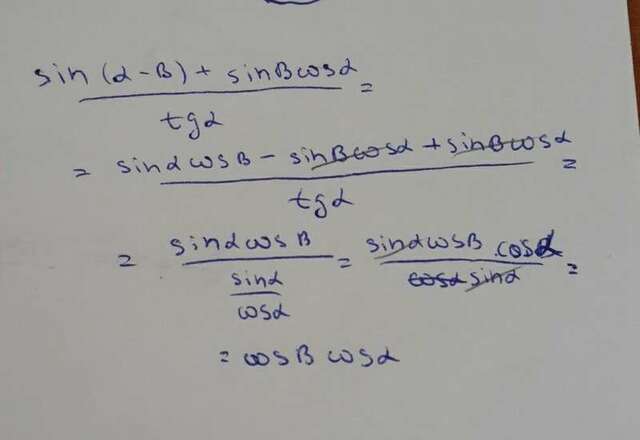 sin(α-β) + sinβcosα =
tgα
= sinαcosβ - sinβcosα + sinβcosα =
tgα
= sinαcosβ = sinαcosβ · cosα =
sinα sinα
cosα
= cosβ cosα